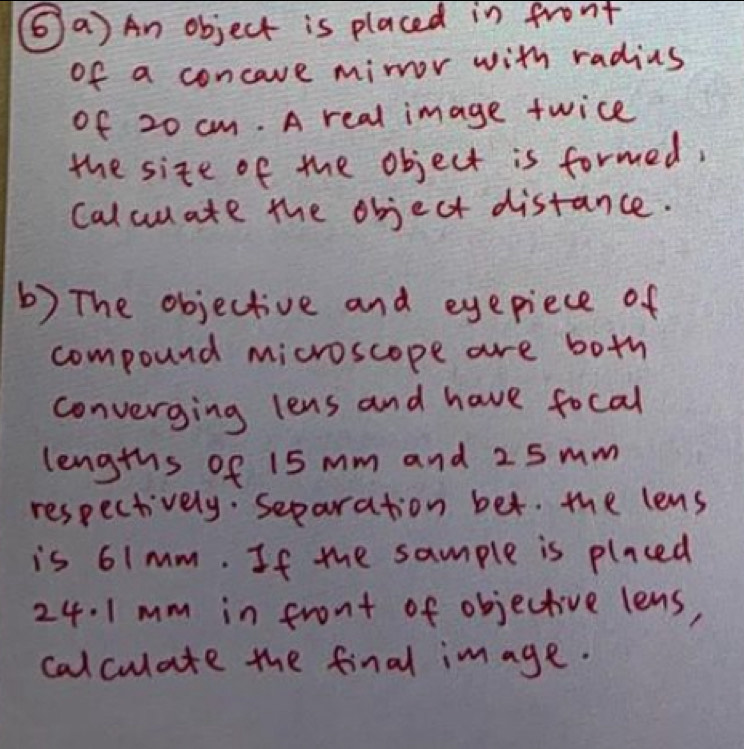 6 a) An object is placed in front
of a concave mirror with radius
of 20 cm. A real image twice
the size of the object is formed.
Calculate the object distance.
b) The objective and eyepiece of
compound microscope are both
converging lens and have focal
lengths of 15 mm and 25 mm
respectively. Separation bet. the lens
is 61 mm. If the sample is placed
24.1 mm in front of objective lens,
calculate the final image.